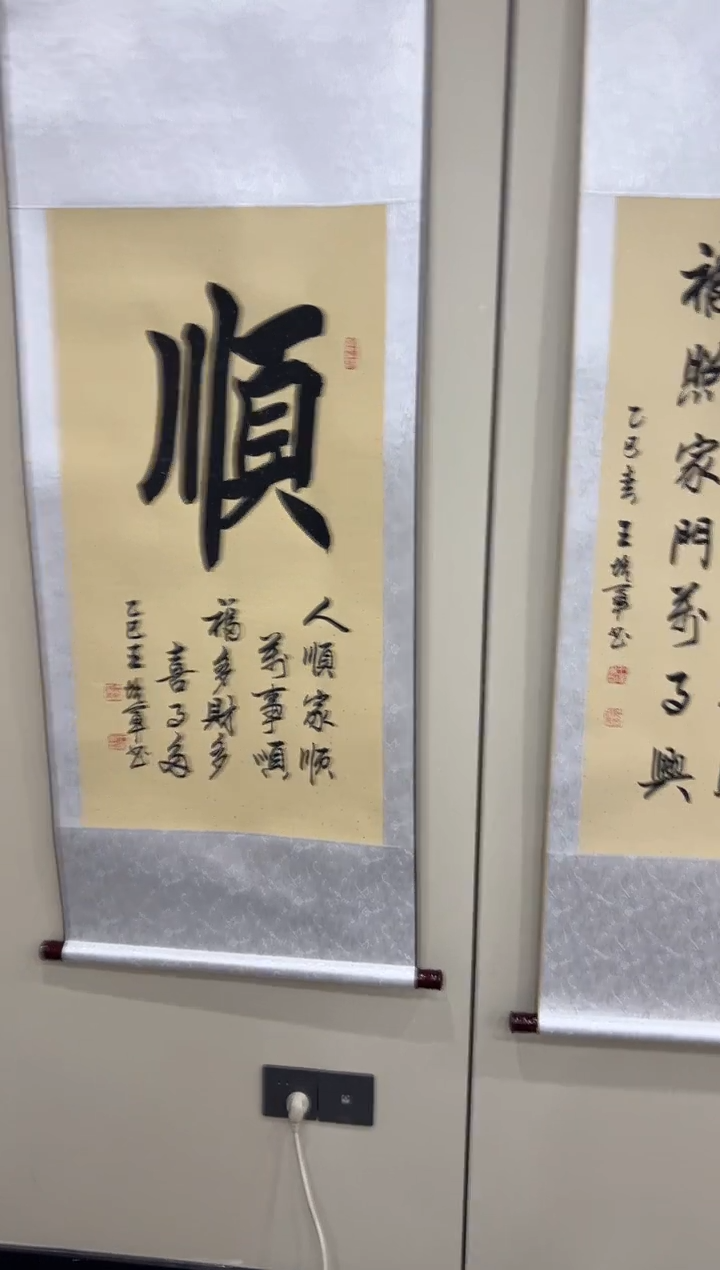 順
人順家順
萬事順
福多財多
喜事多
乙巳王書
福照家門萬事興
乙巳春王書